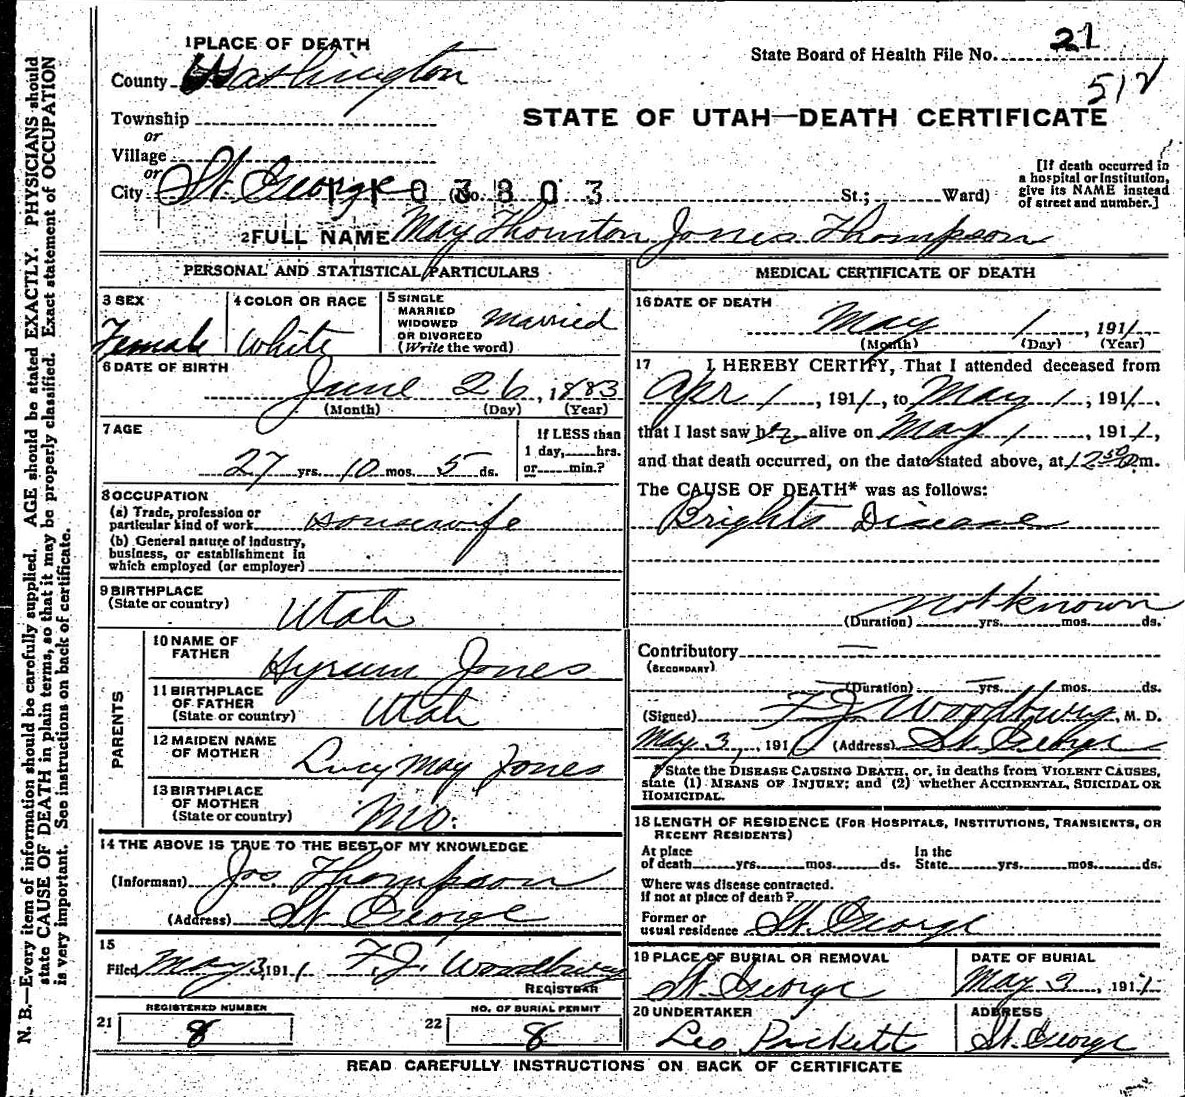 1 PLACE OF DEATH
County Washington
State Board of Health File No. 21
512
Township
or
Village
or
City St. George
1103803
(No. St.; Ward)
STATE OF UTAH—DEATH CERTIFICATE
[If death occurred in
a hospital or institution,
give its NAME instead
of street and number.]
2 FULL NAME May Thornton Jones Thompson
PERSONAL AND STATISTICAL PARTICULARS
3 SEX
Female
4 COLOR OR RACE
White
5 SINGLE
MARRIED
WIDOWED
OR DIVORCED
(Write the word)
Married
6 DATE OF BIRTH
June 26, 1883
(Month) (Day) (Year)
7 AGE
27 yrs. 10 mos. 5 ds.
If LESS than
1 day, hrs.
or min.?
8 OCCUPATION
(a) Trade, profession or
particular kind of work Housewife
(b) General nature of industry,
business, or establishment in
which employed (or employer)
9 BIRTHPLACE
(State or country)
Utah
PARENTS
10 NAME OF
FATHER
Hyrum Jones
11 BIRTHPLACE
OF FATHER
(State or country)
Utah
12 MAIDEN NAME
OF MOTHER
Lucy May Jones
13 BIRTHPLACE
OF MOTHER
(State or country)
Mo.
14 THE ABOVE IS TRUE TO THE BEST OF MY KNOWLEDGE
(Informant) Jos. Thompson
(Address) St George
15
Filed May 3, 1911 F. J. Woodbury
REGISTRAR
REGISTERED NUMBER
21 8
NO. OF BURIAL PERMIT
22 8
MEDICAL CERTIFICATE OF DEATH
16 DATE OF DEATH
May 1, 1911
(Month) (Day) (Year)
17 I HEREBY CERTIFY, That I attended deceased from
Apr 1, 1911, to May 1, 1911,
that I last saw her alive on May 1, 1911,
and that death occurred, on the date stated above, at 12 50 m.
The CAUSE OF DEATH* was as follows:
Brights Disease
Not known
(Duration) yrs. mos. ds.
Contributory —
(SECONDARY)
(Duration) yrs. mos. ds.
(Signed) F. J. Woodbury, M. D.
May 3, 1911 (Address) St. George
*State the DISEASE CAUSING DEATH, or, in deaths from VIOLENT CAUSES,
state (1) MEANS OF INJURY; and (2) whether ACCIDENTAL, SUICIDAL OR
HOMICIDAL.
18 LENGTH OF RESIDENCE (FOR HOSPITALS, INSTITUTIONS, TRANSIENTS, OR
RECENT RESIDENTS)
At place
of death yrs. mos. ds.
In the
State yrs. mos. ds.
Where was disease contracted.
if not at place of death?
Former or
usual residence St. George
19 PLACE OF BURIAL OR REMOVAL
St George
DATE OF BURIAL
May 3, 1911
20 UNDERTAKER
Leo Prickett
ADDRESS
St. George
READ CAREFULLY INSTRUCTIONS ON BACK OF CERTIFICATE
N. B.—Every item of information should be carefully supplied. AGE should be stated EXACTLY. PHYSICIANS should
state CAUSE OF DEATH in plain terms, so that it may be properly classified. Exact statement of OCCUPATION
is very important. See instructions on back of certificate.